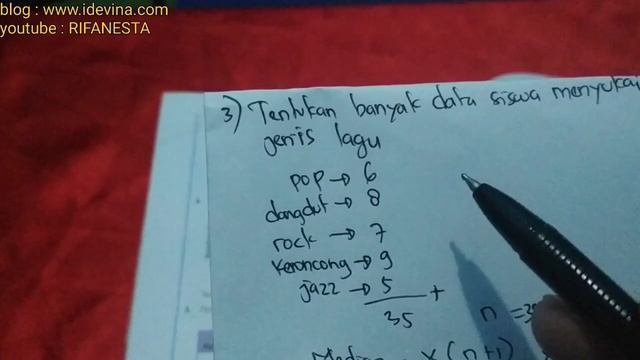 blog : www.idevina.com
youtube : RIFANESTA
3) Tentukan banyak data siswa menyukai
jenis lagu
pop → 6
dangdut → 8
rock → 7
keroncong → 9
jazz → 5 +
35
n =
x (n+1)